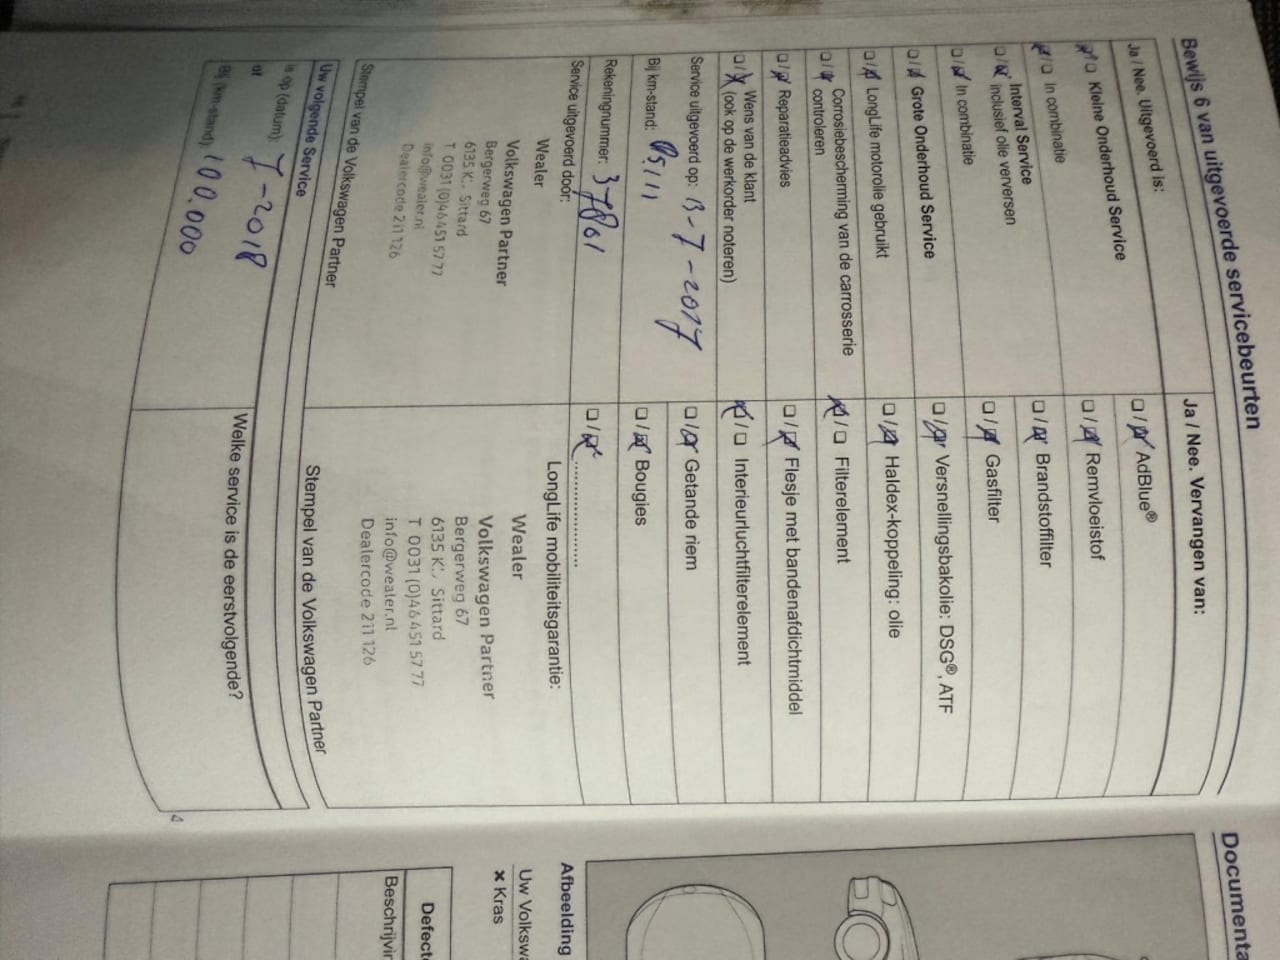 Bewijs 6 van uitgevoerde servicebeurten
Ja / Nee. Uitgevoerd is:
☒ / ☐ Kleine Onderhoud Service
☒ / ☐ In combinatie
☐ / ☒ Interval Service
inclusief olie verversen
☐ / ☒ In combinatie
☐ / ☒ Grote Onderhoud Service
☐ / ☒ LongLife motorolie gebruikt
☐ / ☒ Corrosiebescherming van de carrosserie
controleren
☐ / ☒ Reparatieadvies
☐ / ☒ Wens van de klant
(ook op de werkorder noteren)
Service uitgevoerd op: 13-7-2017
Bij km-stand:
Rekeningnummer:
Service uitgevoerd door:
Wealer
Volkswagen Partner
Bergerweg 67
6135 Sittard
T 0031 (0)46 451 57 77
info@wealer.nl
Dealercode 211 126
Stempel van de Volkswagen Partner
Ja / Nee. Vervangen van:
☐ / ☒ AdBlue®
☐ / ☒ Remvloeistof
☐ / ☒ Brandstoffilter
☐ / ☒ Gasfilter
☐ / ☒ Versnellingsbakolie: DSG®, ATF
☐ / ☒ Haldex-koppeling: olie
☒ / ☐ Filterelement
☐ / ☒ Flesje met bandenafdichtmiddel
☒ / ☐ Interieurluchtfilterelement
☐ / ☒ Getande riem
☐ / ☒ Bougies
☐ / ☒ ....................
LongLife mobiliteitsgarantie:
Wealer
Volkswagen Partner
Bergerweg 67
6135 Sittard
T 0031 (0)46 451 57 77
info@wealer.nl
Dealercode 211 126
Stempel van de Volkswagen Partner
Uw volgende Service
is op (datum): 7-2018
of
Bij (km-stand): 100.000
Welke service is de eerstvolgende?
Documenta
Afbeelding
Uw Volkswa
× Kras
Defect
Beschrijvin